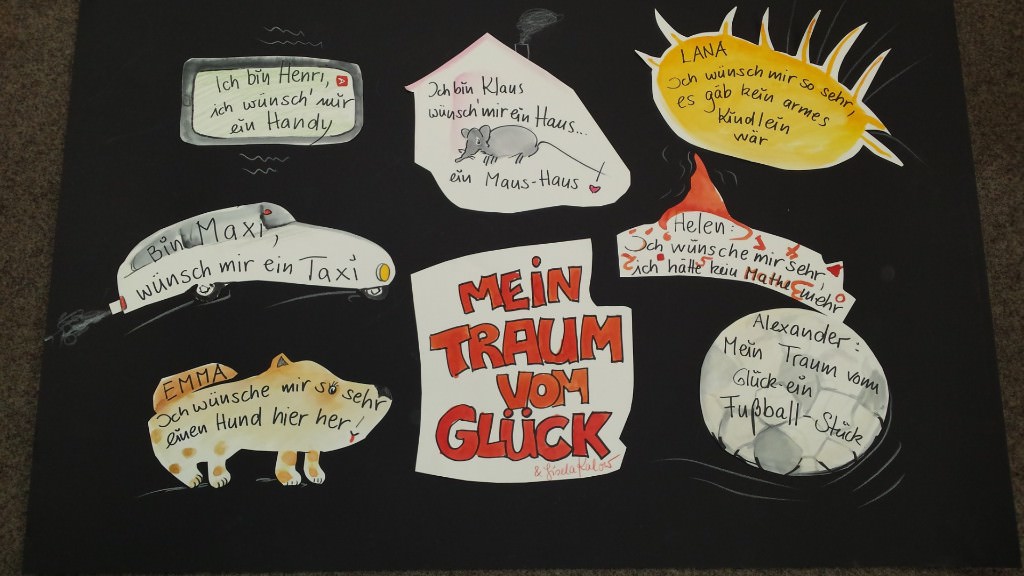 Ich bin Henri,
ich wünsch' mir
ein Handy
Ich bin Klaus
wünsch' mir ein Haus...
ein Maus-Haus
LANA
Ich wünsch mir so sehr,
es gäb kein armes
Kindlein
wär
Bin Maxi,
wünsch mir ein Taxi
Helen:
Ich wünsche mir sehr,
ich hätte kein Mathe mehr
EMMA
Ich wünsche mir so sehr
einen Hund hier her!
MEIN
TRAUM
VOM
GLÜCK
& Gisela Kalow
Alexander:
Mein Traum vom
Glück-ein
Fußball-Stück